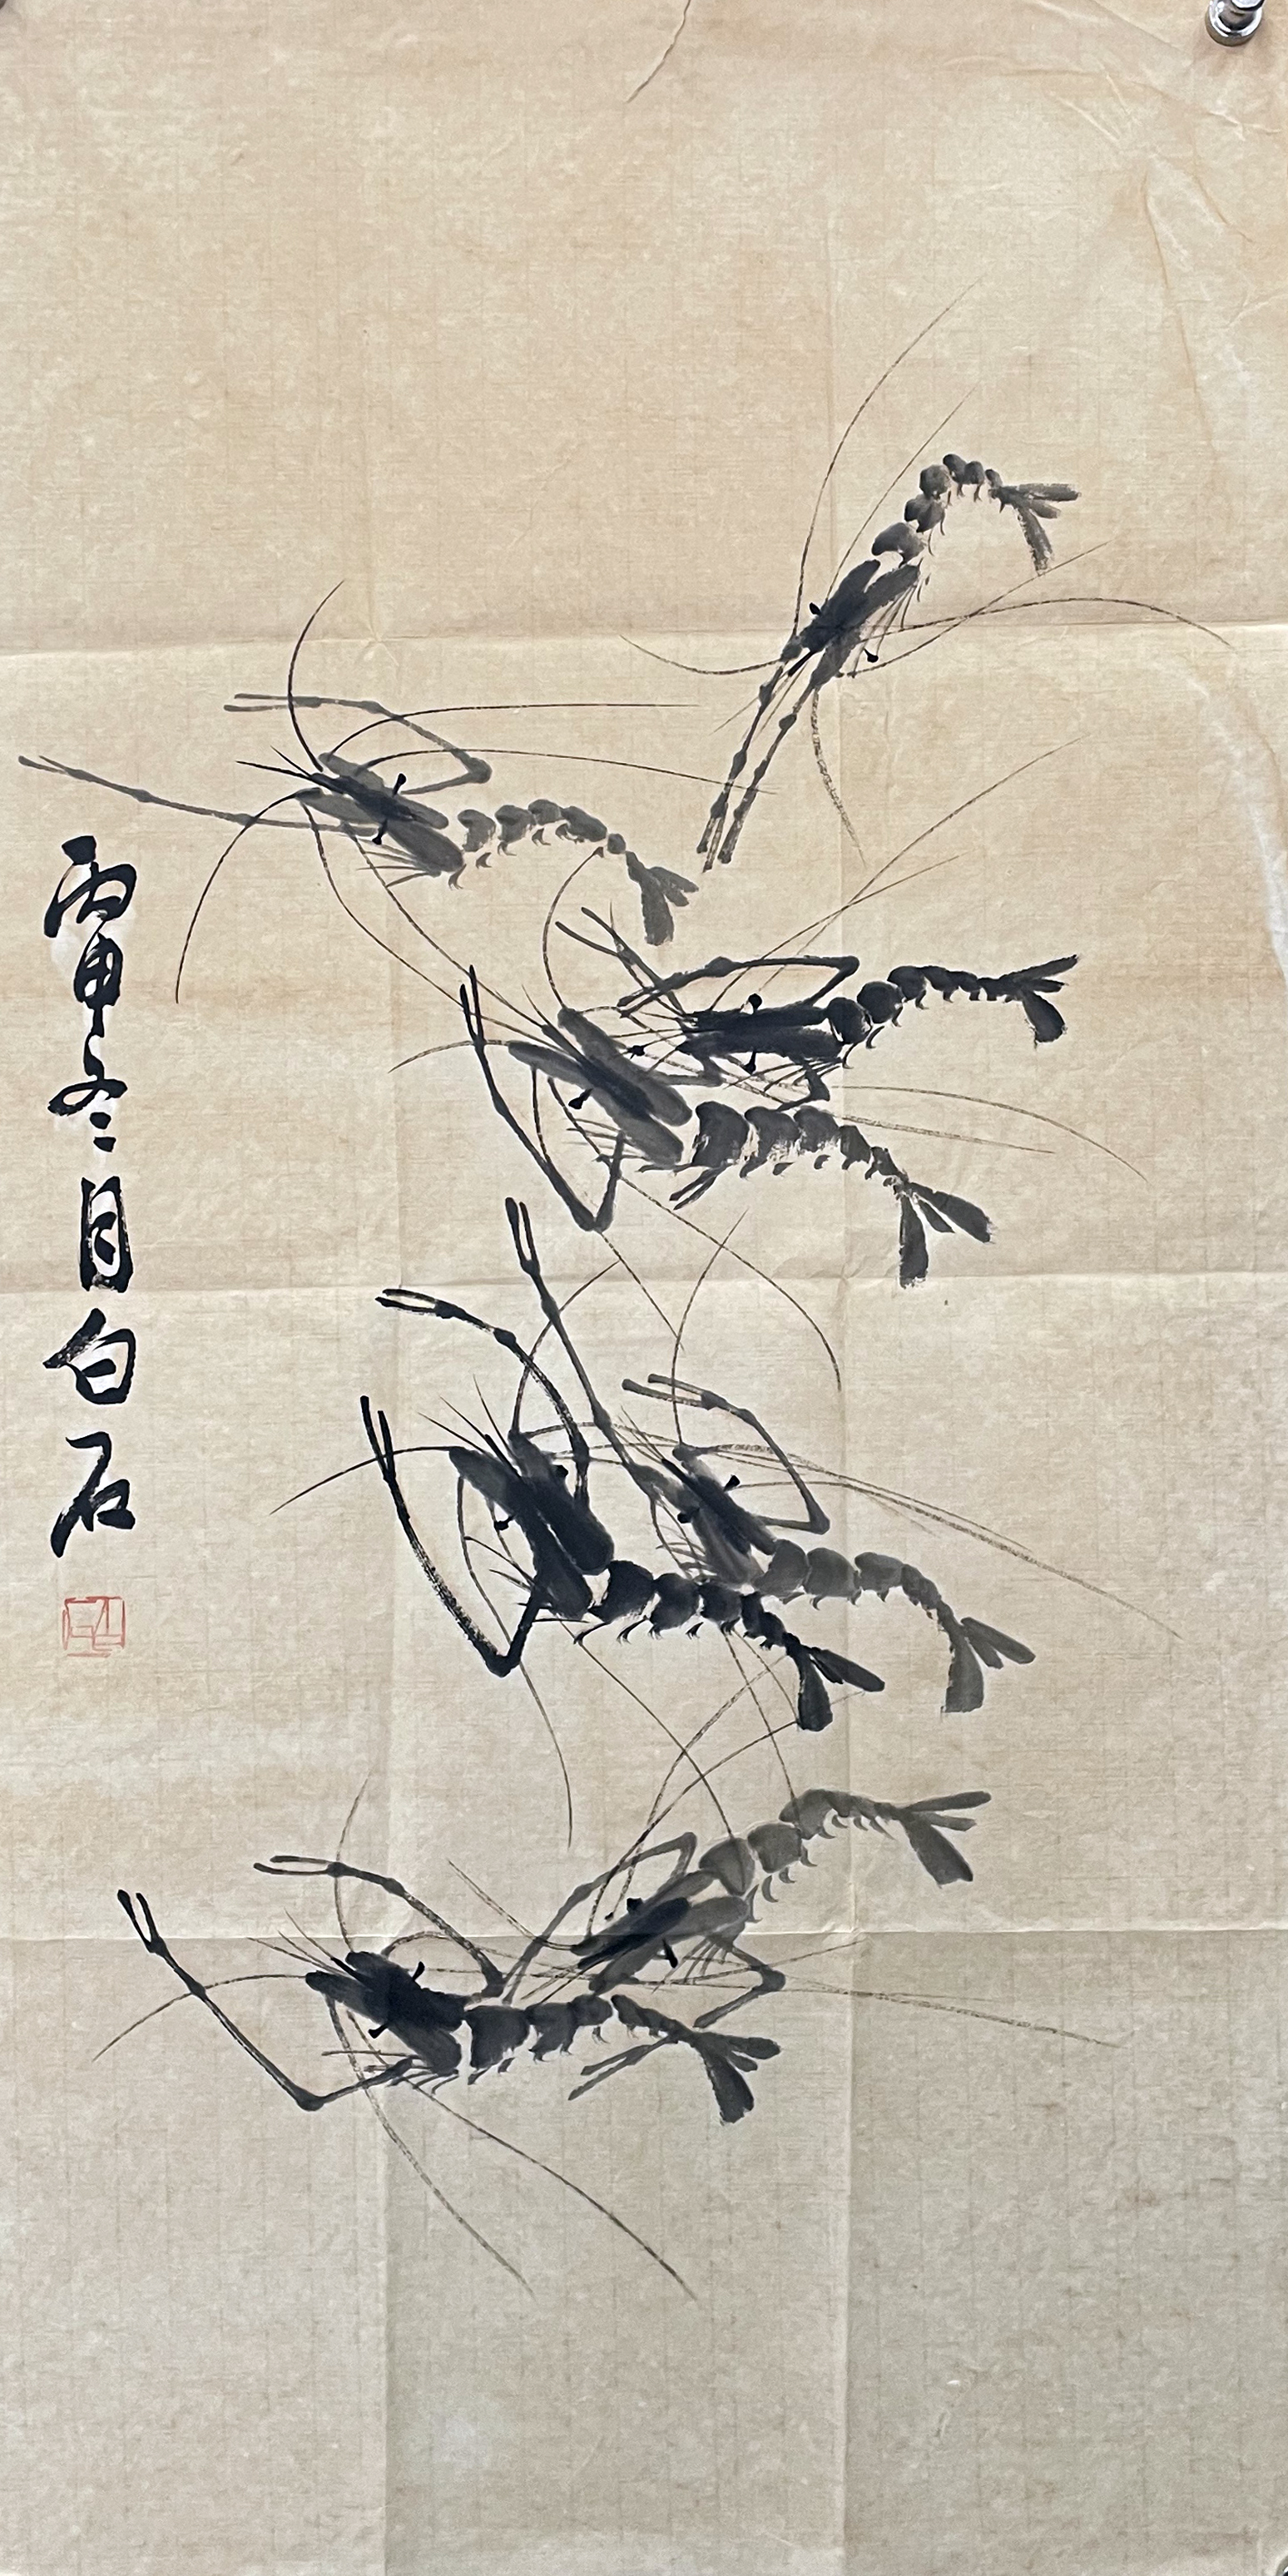 丙申冬月白石